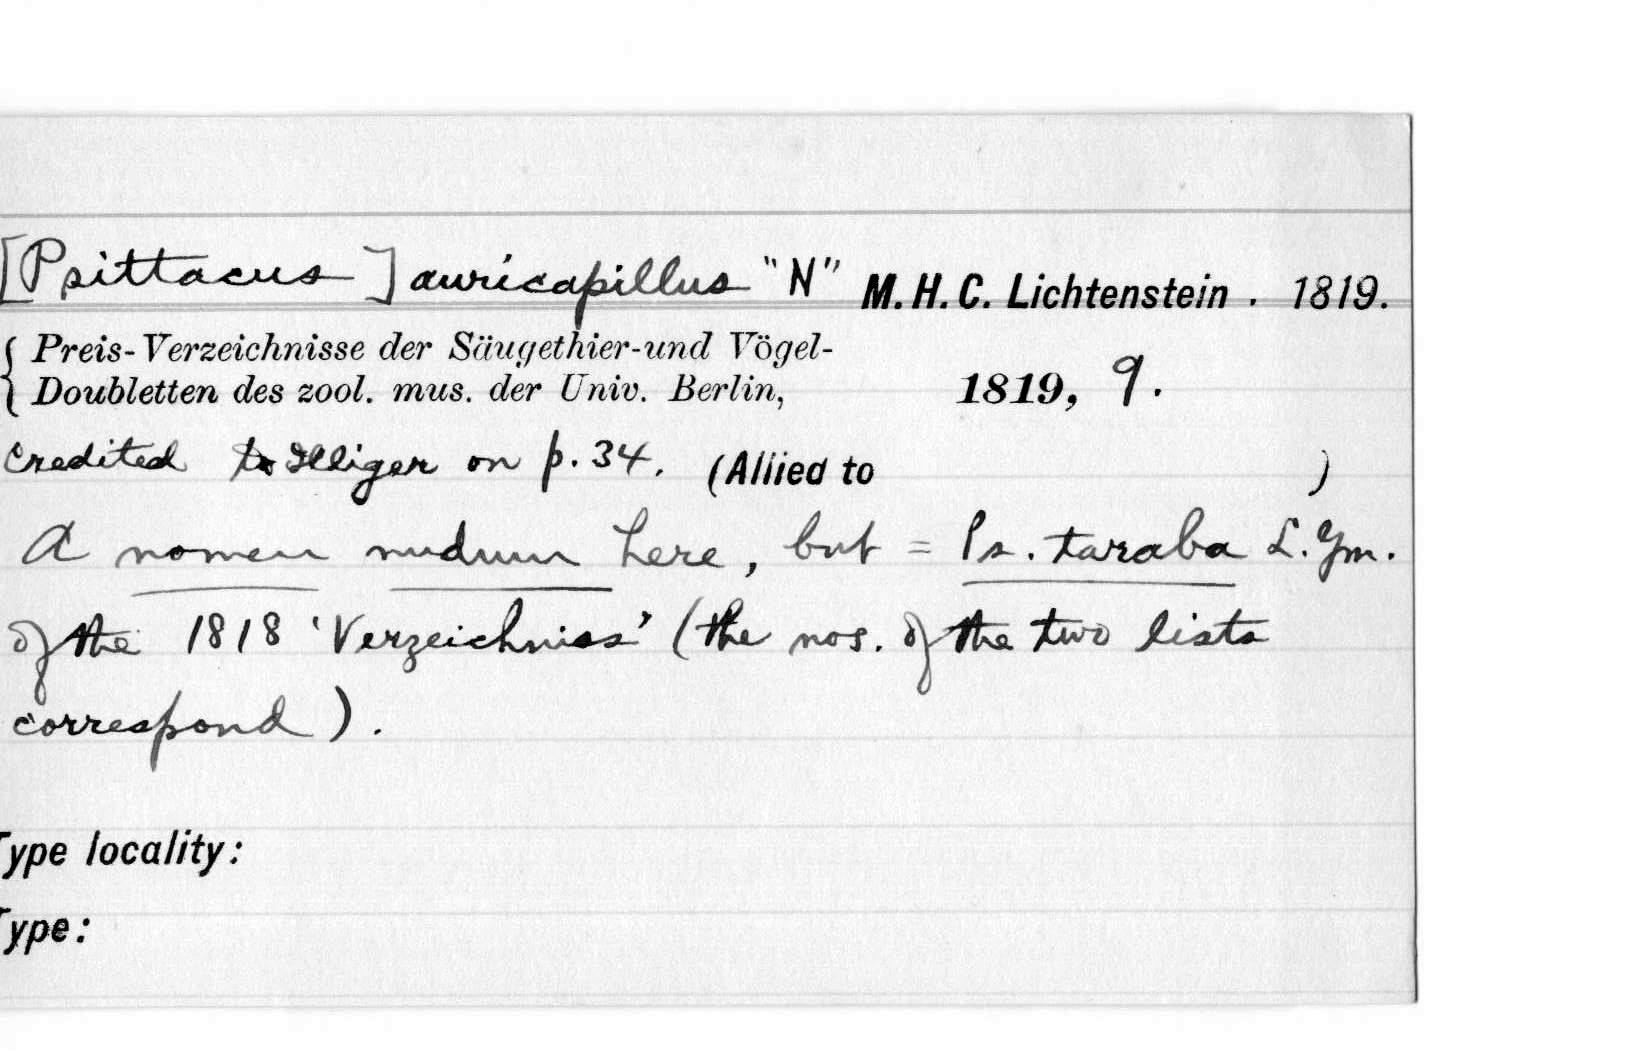 [Psittacus] auricapillus "N" M. H. C. Lichtenstein . 1819.
{ Preis-Verzeichnisse der Säugethier-und Vögel-
Doubletten des zool. mus. der Univ. Berlin, 1819, 9.
Credited to Illiger on p. 34. (Allied to )
A nomen nudum here, but = Ps. taraba L. Gm.
of the 1818 'Verzeichniss' (the nos. of the two lists
correspond).
Type locality:
Type: